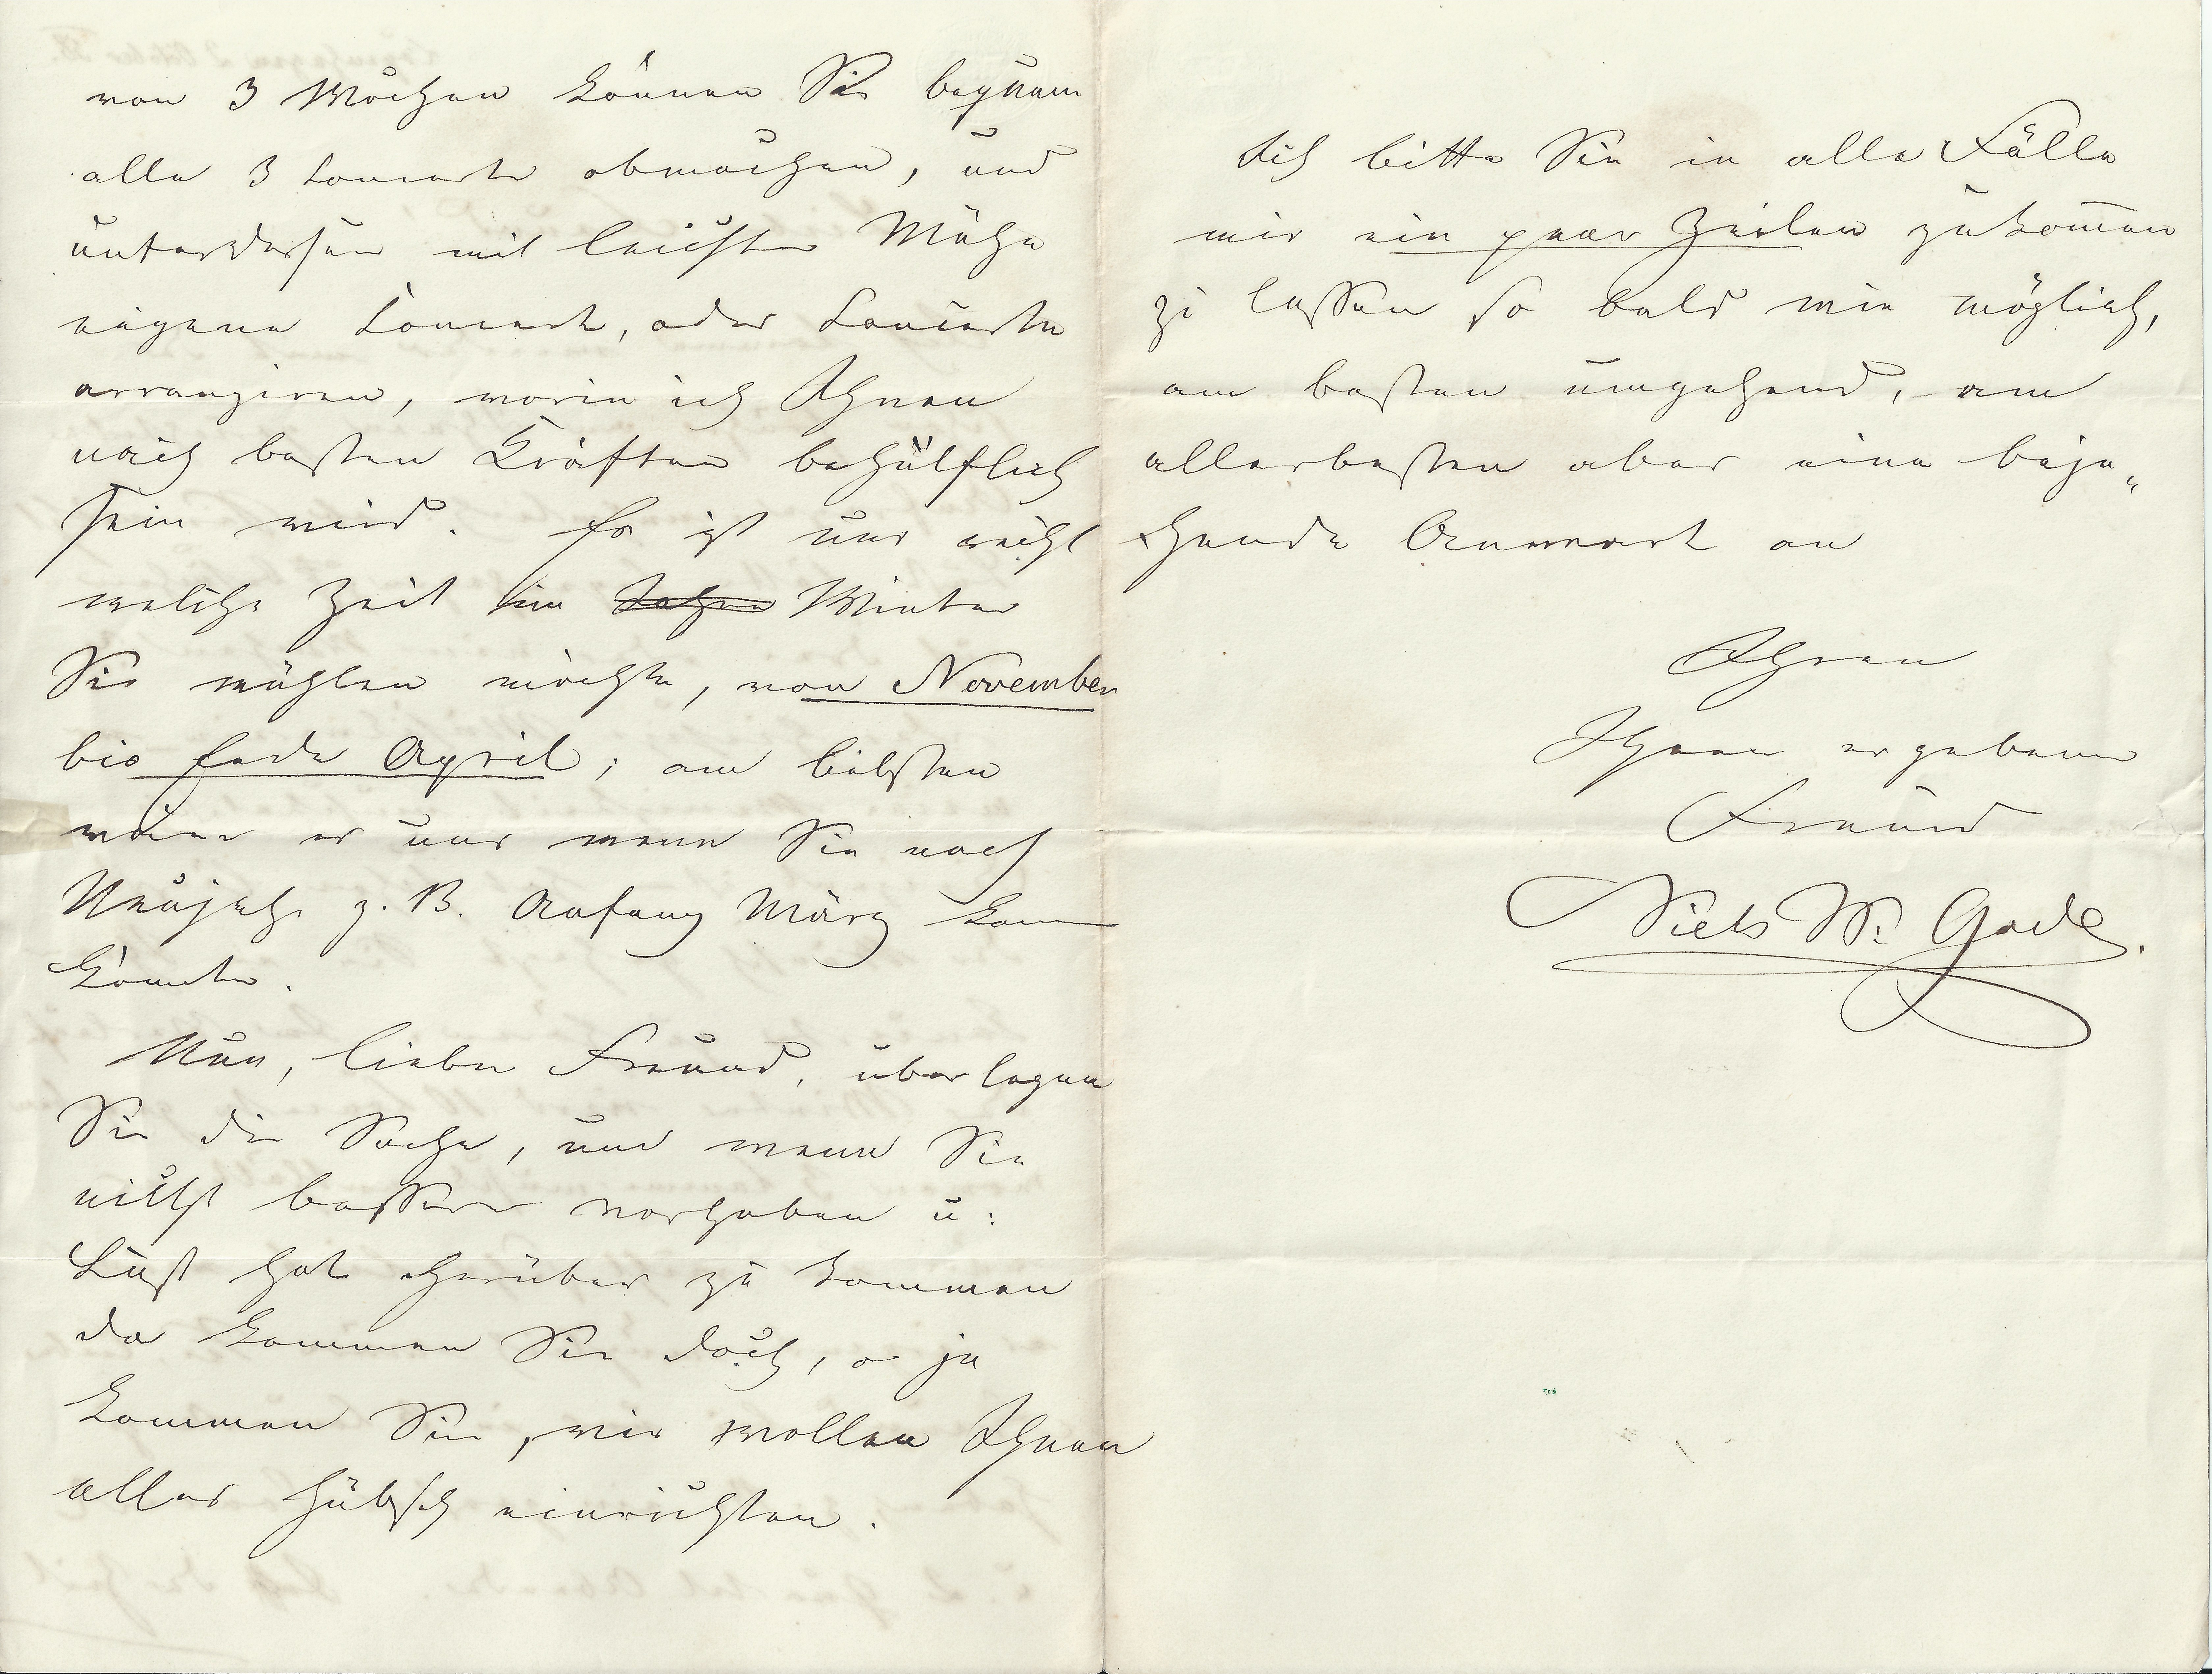 von 3 Wochen können Sie bequem
alle 3 Concerte abmachen, und
unterdessen mit leichter Mühe
eigene Concert, oder Concerte
arrangiren, worin ich Ihnen
nach besten Kräften behülflich
sein wird. Es ist uns nicht
welche Zeit im Jahre Winter
Sie wählen möchte, von November
bis Ende April; am liebsten
wäre es uns wenn Sie nach
Neujahr z. B. Anfang März kom
könnten.
Nun, lieber Freund, überlegen
Sie die Sache, und wenn Sie
nichts besseres vorhaben u:
Lust hat herüber zu kommen
da kommen Sie doch, o ja
kommen Sie, wir wollen Ihnen
alles hübsch einrichten.
Ich bitte Sie in alle Fälle
mir ein paar Zeilen zukom̄en
zu lassen so bald wie möglich,
am besten umgehend, am
allerbesten aber eine beja„
hende Annwort an
Ihren
Ihnen ergebenen
Freund
Niels W. Gade.